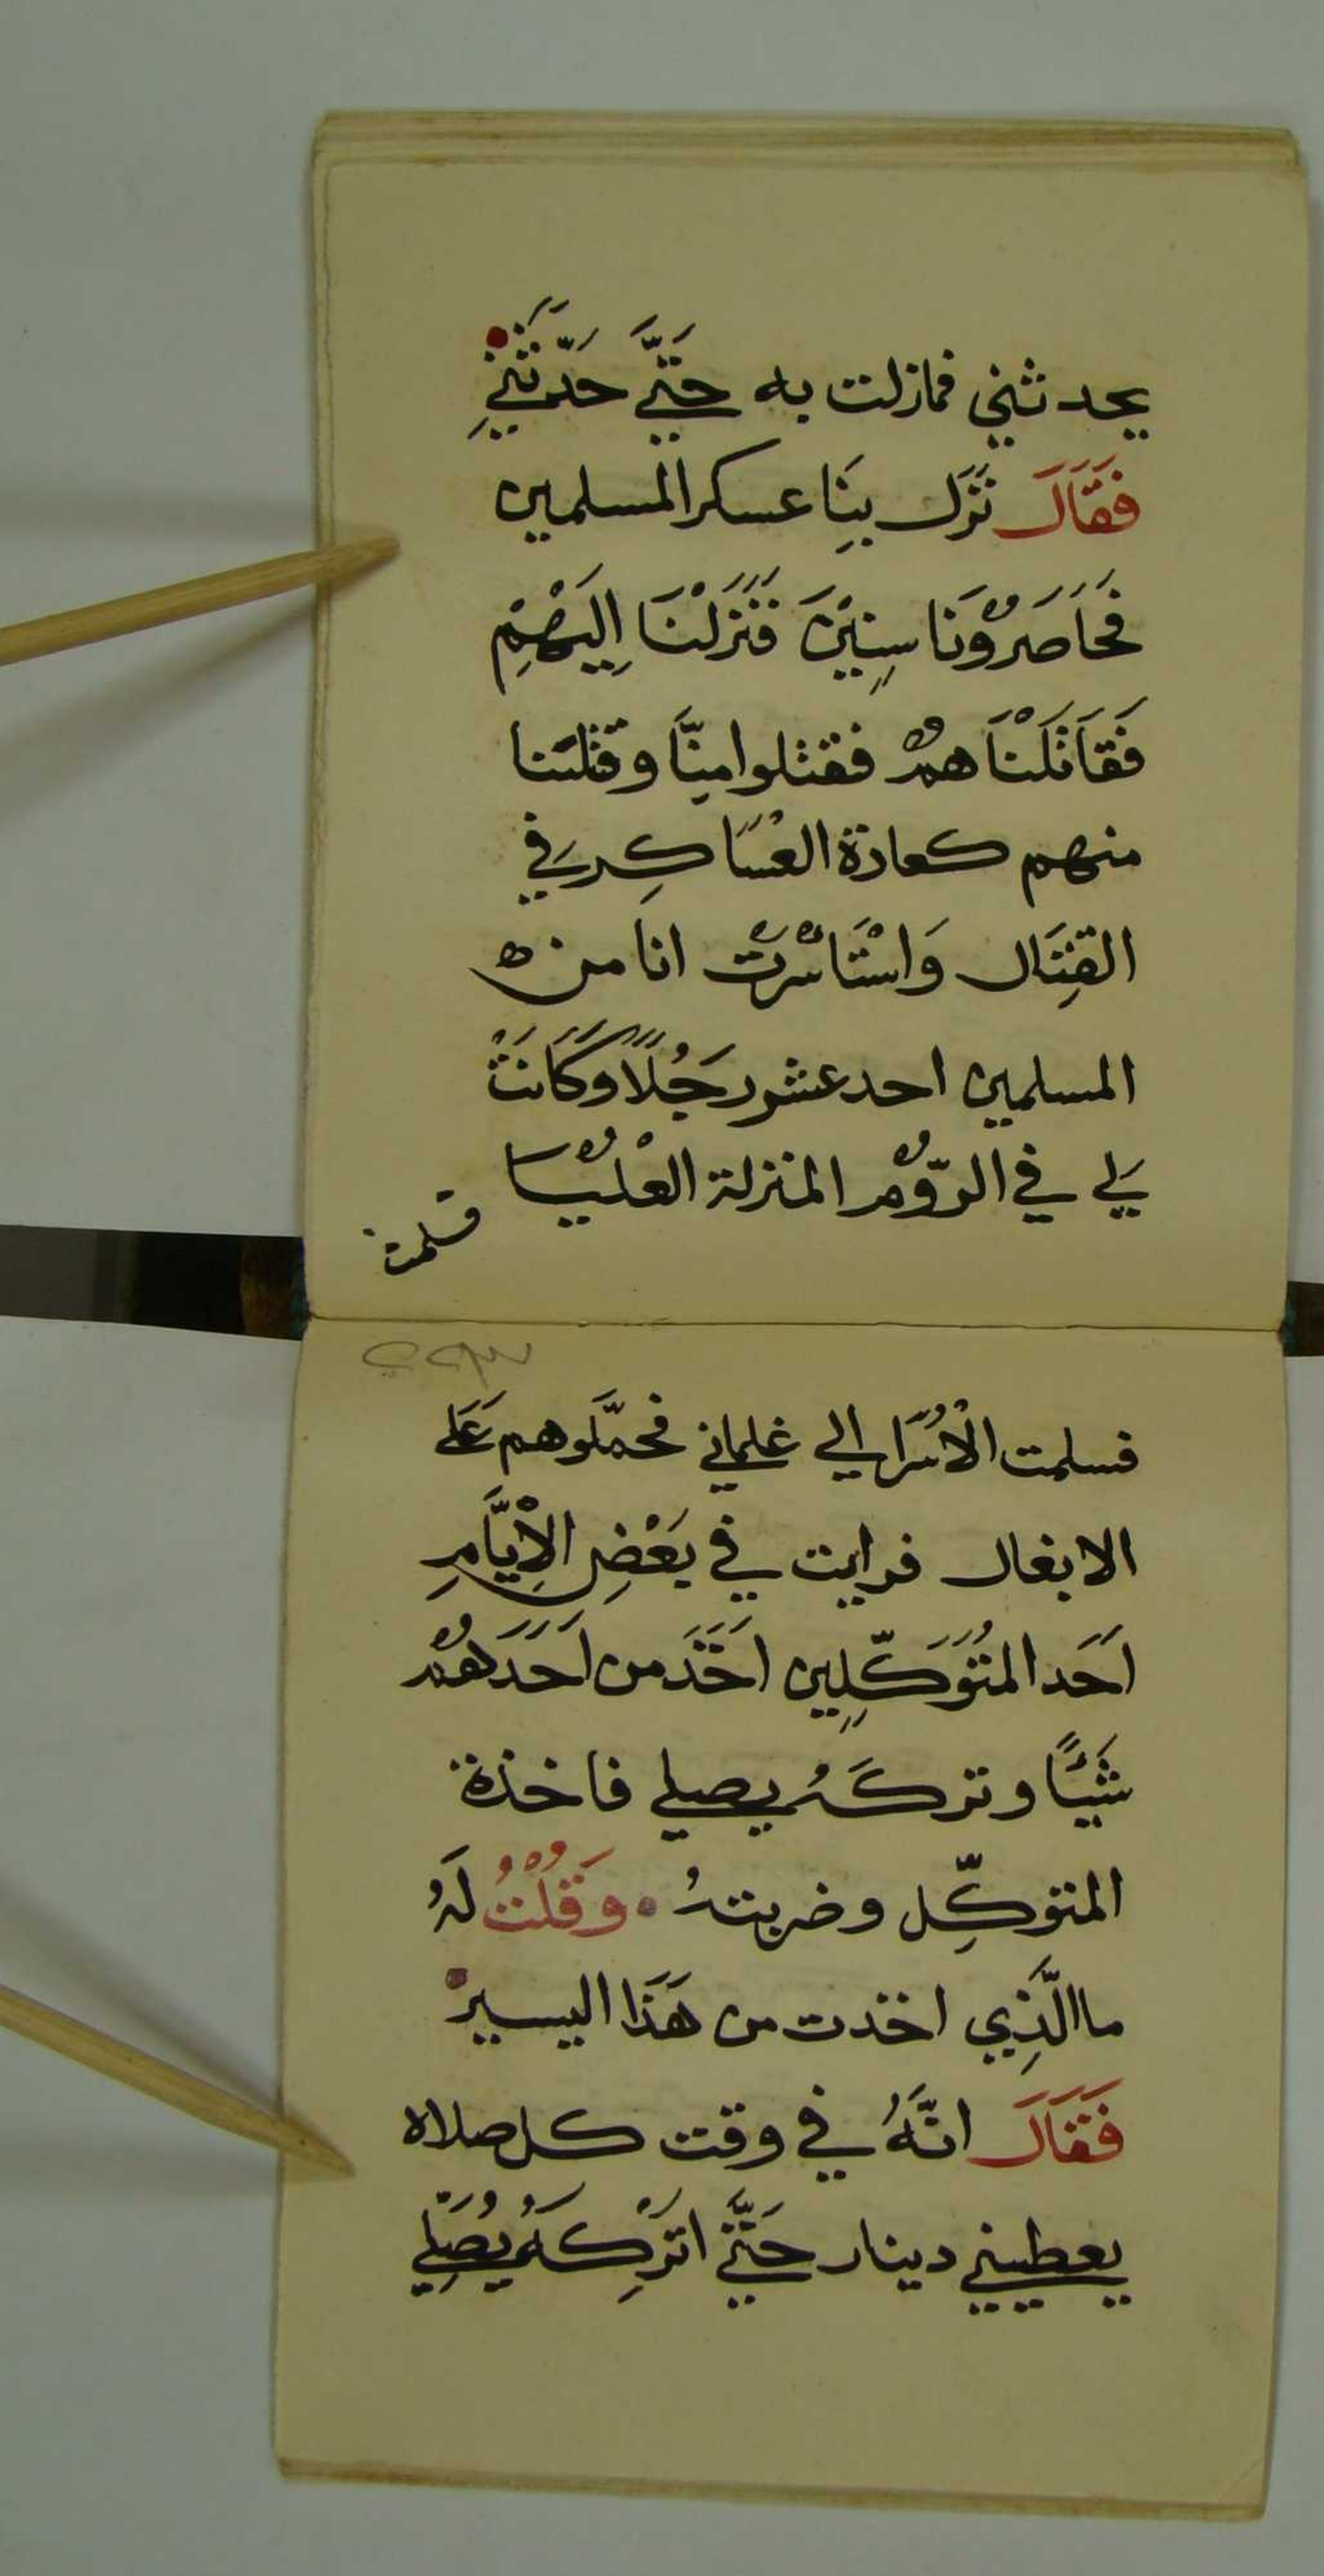 يحدثني فمازلت به حَتَّي حَدَّثَنِي
فَقَالَ نَزَل بِنَا عسكر المسلمين
فَحَاصَرُونَا سِنِيْنَ فَنَزَلْنَا اِلَيهِمْ
فَقَاتَلْنَاهمُ فقتلوا مِنَّا وقتلَنا
منهم كعادة العْسَاكِر في
القِتَال وَاسْتَاسْرتُ انا من
المسلمين احد عشر رَجُلًا وكَانَتْ
لي في الرّوُم المنزلة العْليُا
فسلمت
فسلمت الْاُسَرَا الي غلماني فحمَّلوهم عَلَي
الابغال فرايت في بَعْضِ الْاِيَّامِ
اَحَد المُتَوَكِّلِين اَخَذَ من اَحَدَهُم
شَيًْا وتركَهُ يصلي فاخذة
المتوكِّل وضربتهُ وَقُلْتُ لَهُ
ما الَّذِي اخذت من هَذَا اليسير
فَقَالَ انَّهُ في وقت كل صلاه
يعطيني دينار حَتَّي اتْرِكَهُ يُصَلِّي